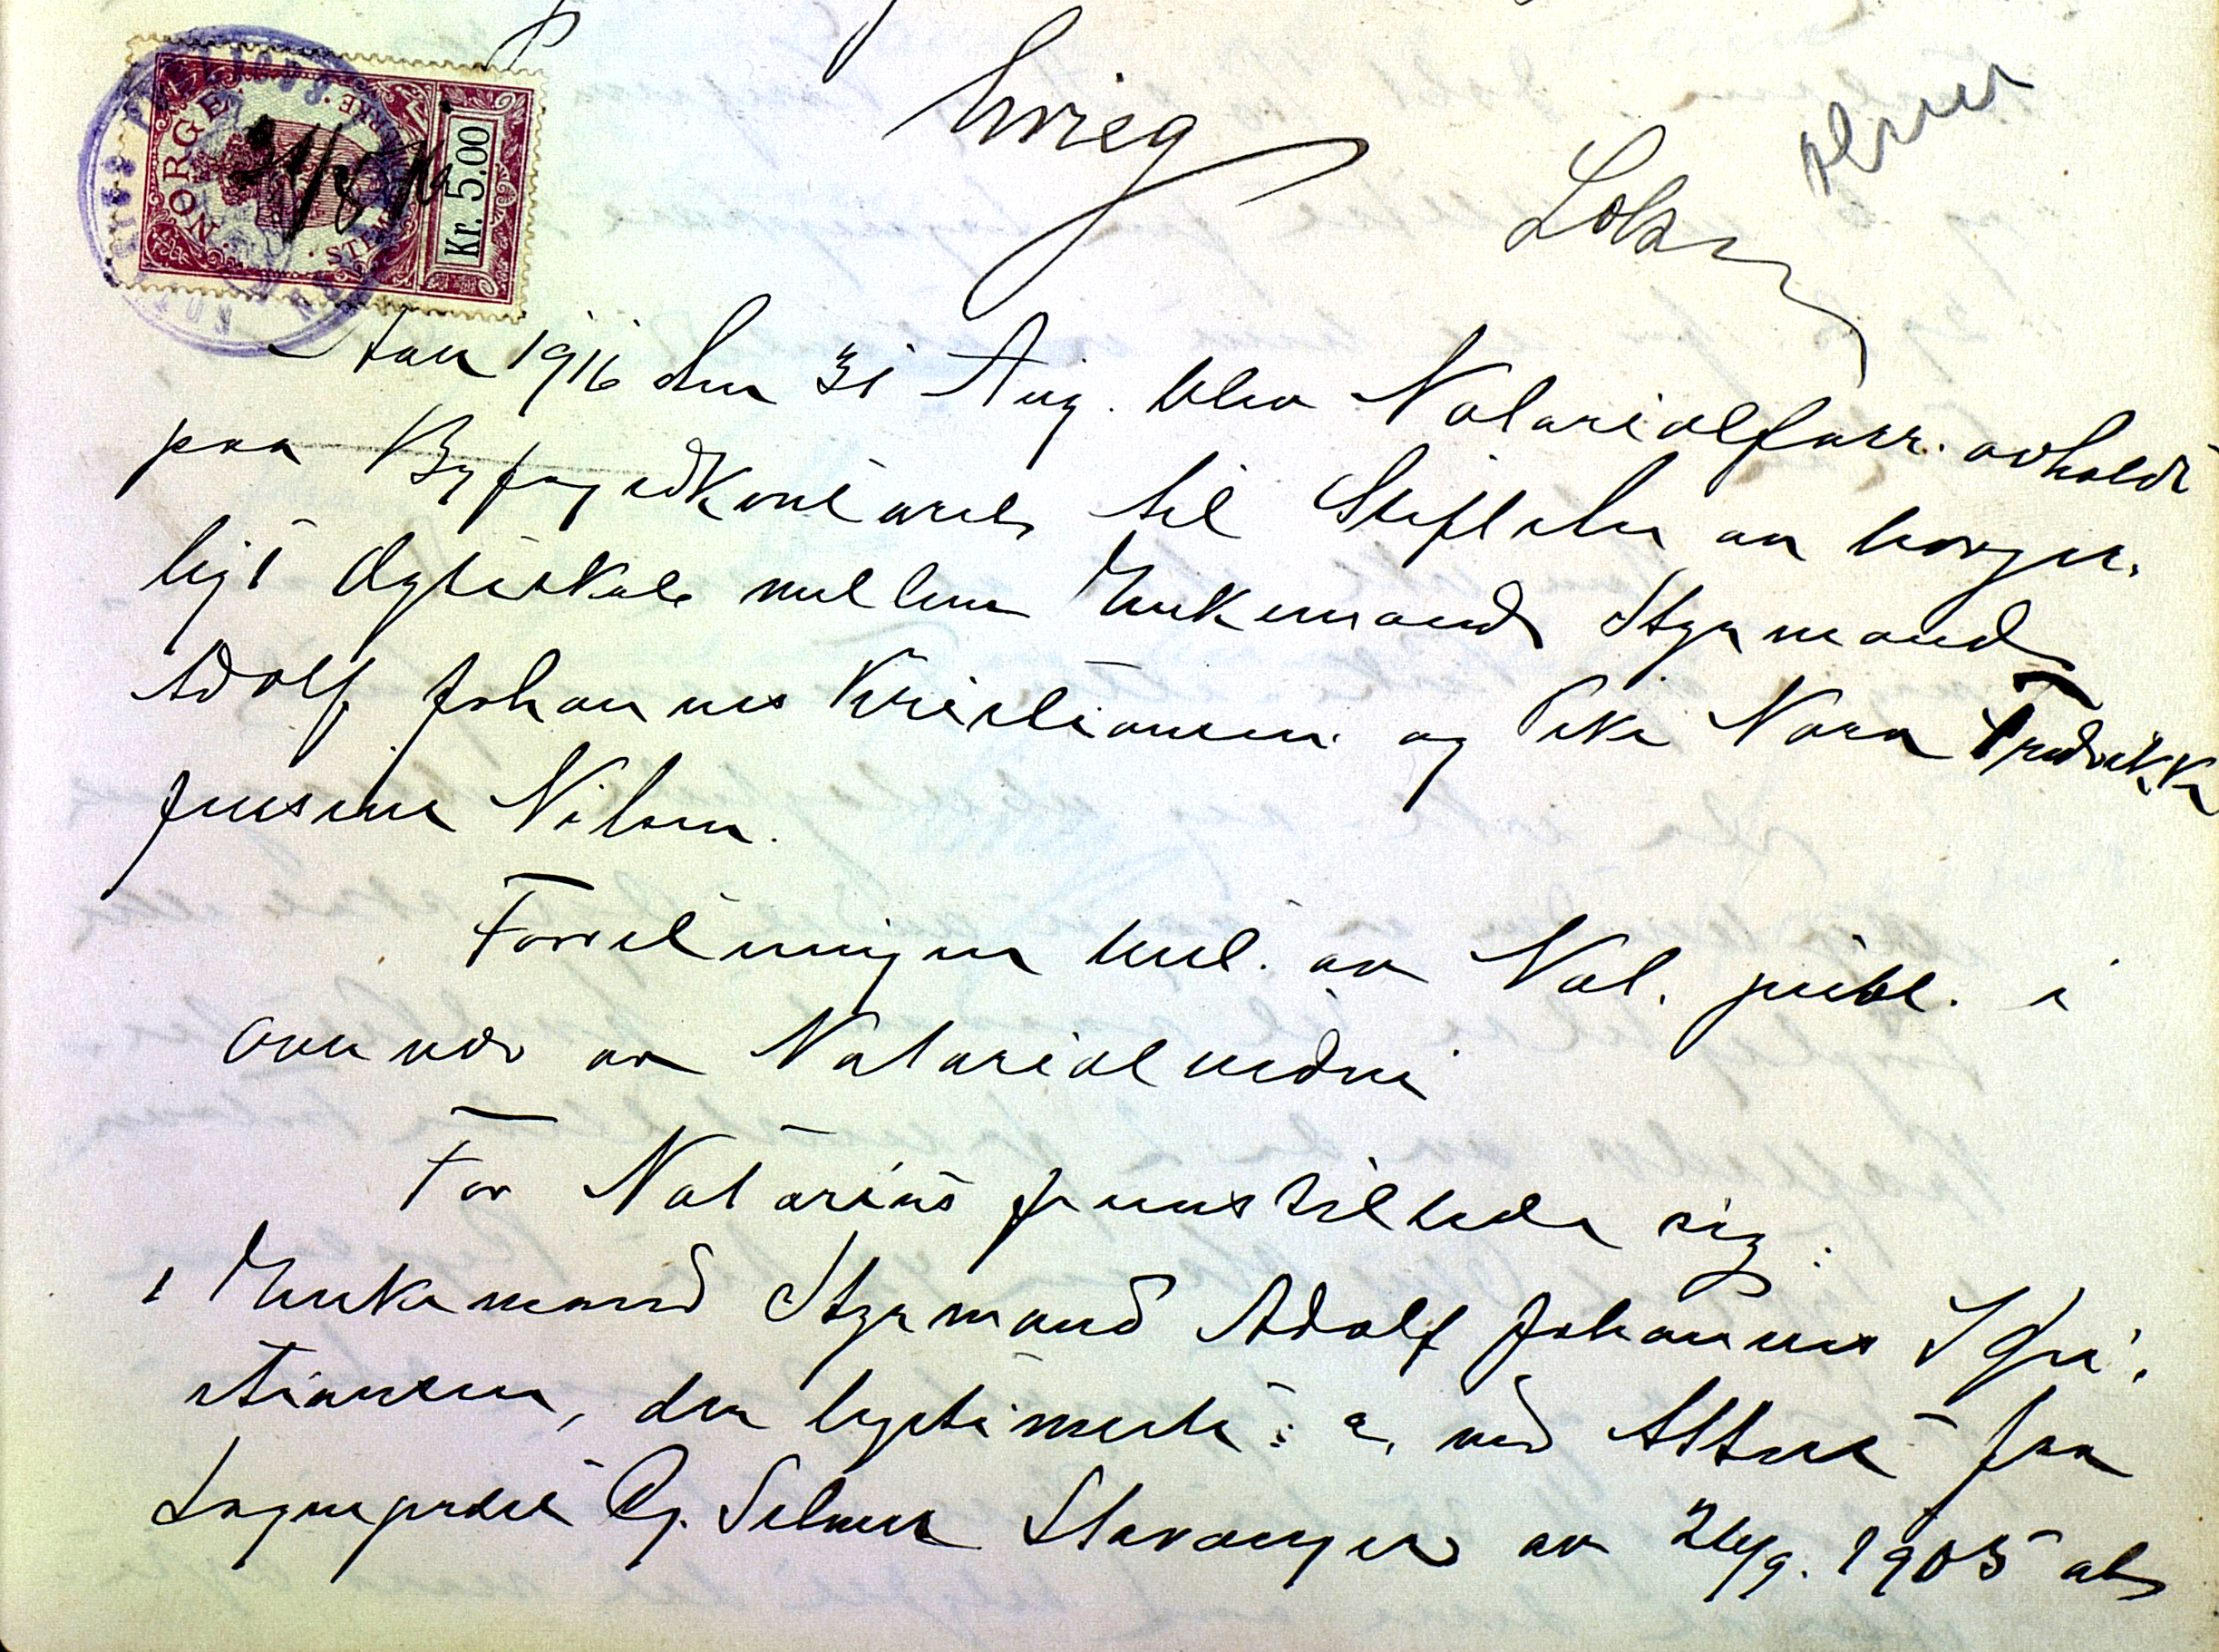 NORGE
Kr. 5.00
31/8 16
Grieg
Aar 1916 den 31 Aug. blev Notarialforr. avholdt
paa Byfogedkontoret til Stiftelse av borger-
ligt Egteskab mellem Enkemand Styrmand
Adolf Johannes Kristiansen og Pike Nora Fredrikke
Jensine Nilsen.
Forretningen bet. av Not. publ. i
overvær av Notarialvidne
For Notarius fremstillede sig:
1 Enkemand Styrmand Adolf Johannes Kri-
stiansen, der legitimerte: a, ved Attest fra
Sogneprest Selmer Stavanger av 26/9. 1905 at